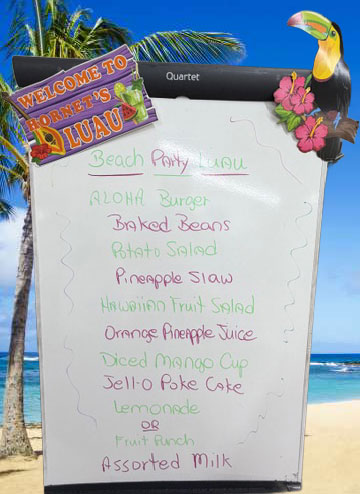 Quartet
WELCOME TO
HORNET'S
LUAU
Beach Party Luau
ALOHA Burger
Baked Beans
Potato Salad
Pineapple Slaw
Hawaiian Fruit Salad
Orange Pineapple Juice
Diced Mango Cup
Jell-O Poke Cake
Lemonade
OR
Fruit Punch
Assorted Milk